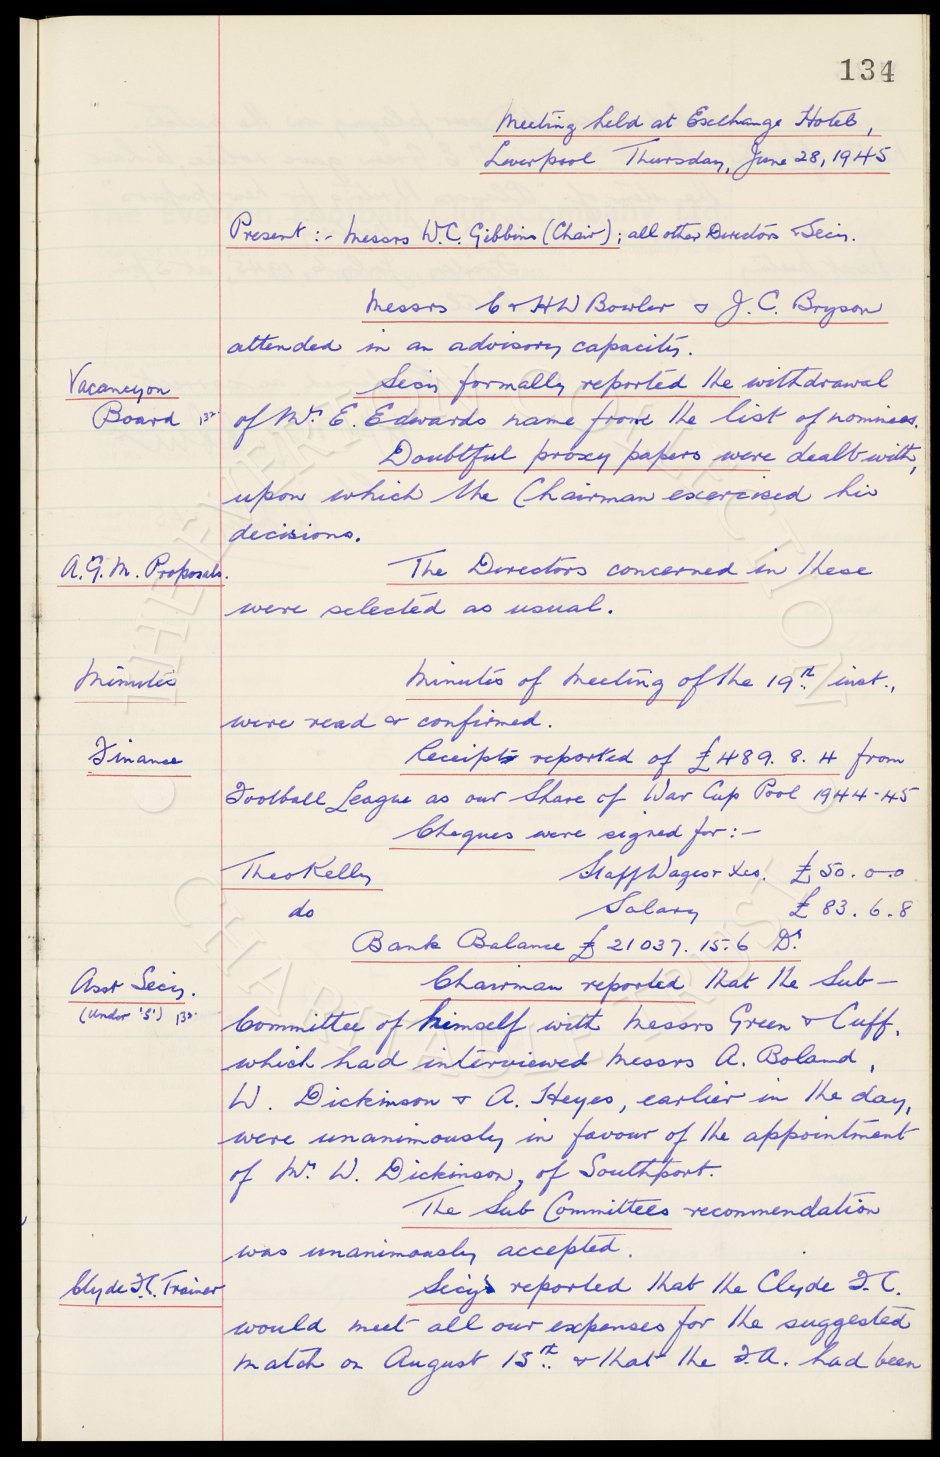 134
Meeting held at Exchange Hotel,
Liverpool Thursday, June 28, 1945
Present :- Messrs W.C. Gibbins (Chair); all other Directors & Secy.
Messrs C & HW Bowler & J. C. Bryson
attended in an advisory capacity.
Vacancy on
Board 132
Secy formally reported the withdrawal
of Mr. E. Edwards name from the list of nominees.
Doubtful proxy papers were dealt with,
upon which the Chairman exercised his
decisions.
A.G.M. Proposals.
The Directors concerned in these
were selected as usual.
Minutes
Minutes of Meeting of the 19th inst.,
were read & confirmed.
Finance
Receipts reported of £489. 8. 4 from
Football League as our Share of War Cup Pool 1944-45
Cheques were signed for:-
Theo Kelly Staff Wages & Xes. £50. 0-0
do Salary £83. 6. 8
Bank Balance £21037. 15. 6 Dr.
Asst Secy.
(Under 'S') 132.
Chairman reported that the Sub-
Committee of himself with Messrs Green & Cuff,
which had interviewed Messrs A. Boland,
W. Dickinson & A. Heyes, earlier in the day,
were unanimously in favour of the appointment
of Mr. W. Dickinson, of Southport.
The Sub Committees recommendation
was unanimously accepted.
Clyde F.C. Trainer
Secy reported that the Clyde F.C.
would meet all our expenses for the suggested
match on August 15th. & that the F.A. had been
THE EVERTON COLLECTION
CHARITABLE TRUST